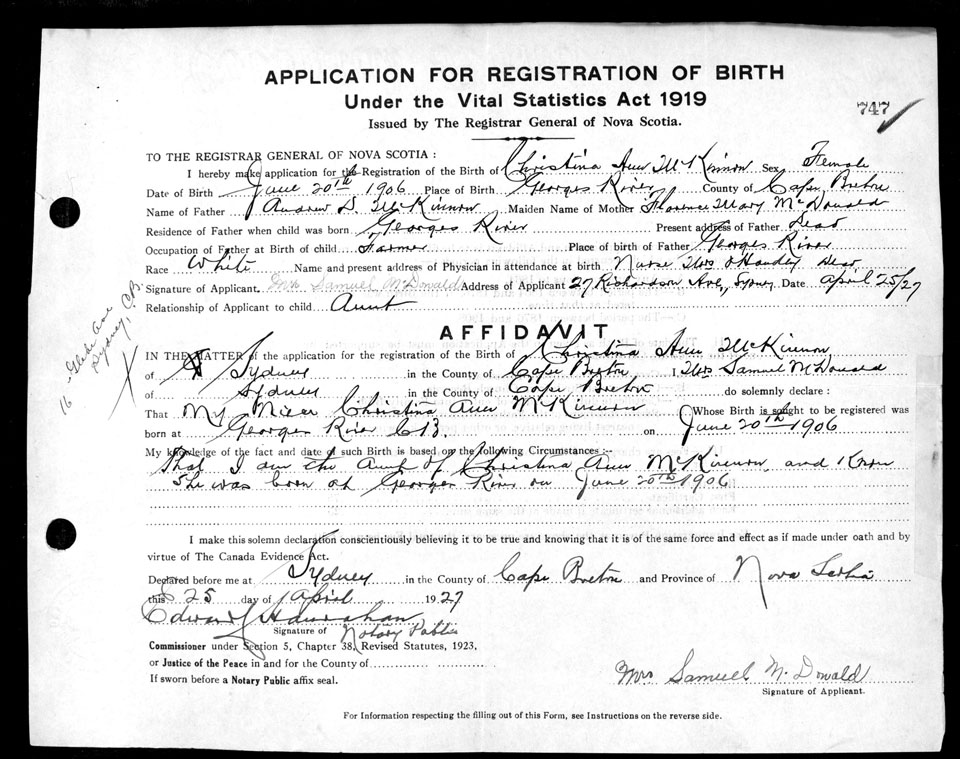 APPLICATION FOR REGISTRATION OF BIRTH
Under the Vital Statistics Act 1919
747
Issued by The Registrar General of Nova Scotia.
TO THE REGISTRAR GENERAL OF NOVA SCOTIA :
I hereby make application for the Registration of the Birth of Christina Ann McKinnon Sex Female
Date of Birth June 20th 1906 Place of Birth Georges River County of Cape Breton
Name of Father Andrew D. McKinnon Maiden Name of Mother Florence Mary McDonald
Residence of Father when child was born Georges River Present address of Father Dead
Occupation of Father at Birth of child Farmer Place of birth of Father Georges River
Race White Name and present address of Physician in attendance at birth Nurse Mrs O'Handley Dead
Signature of Applicant. Mrs Samuel McDonald Address of Applicant 27 Richardson Ave., Sydney Date April 25/27
Relationship of Applicant to child Aunt
16 Glebe Ave
Sydney, C.B.
X
AFFIDAVIT
IN THE MATTER of the application for the registration of the Birth of Christina Ann McKinnon
of Sydney in the County of Cape Breton I, Mrs Samuel McDonald
of Sydney in the County of Cape Breton do solemnly declare :
That My Niece Christina Ann McKinnon Whose Birth is sought to be registered was
born at Georges River C B. on June 20th 1906
My knowledge of the fact and date of such Birth is based on the following Circumstances :-
That I am the Aunt of Christina Ann McKinnon and Know
She was born at Georges River on June 20th 1906
I make this solemn declaration conscientiously believing it to be true and knowing that it is of the same force and effect as if made under oath and by
virtue of The Canada Evidence Act.
Declared before me at Sydney in the County of Cape Breton and Province of Nova Scotia
this 25 day of April 1927
Edward
Signature of Notary Public
Commissioner under Section 5, Chapter 38, Revised Statutes, 1923,
or Justice of the Peace in and for the County of
If sworn before a Notary Public affix seal.
Mrs Samuel McDonald
Signature of Applicant.
For Information respecting the filling out of this Form, see Instructions on the reverse side.